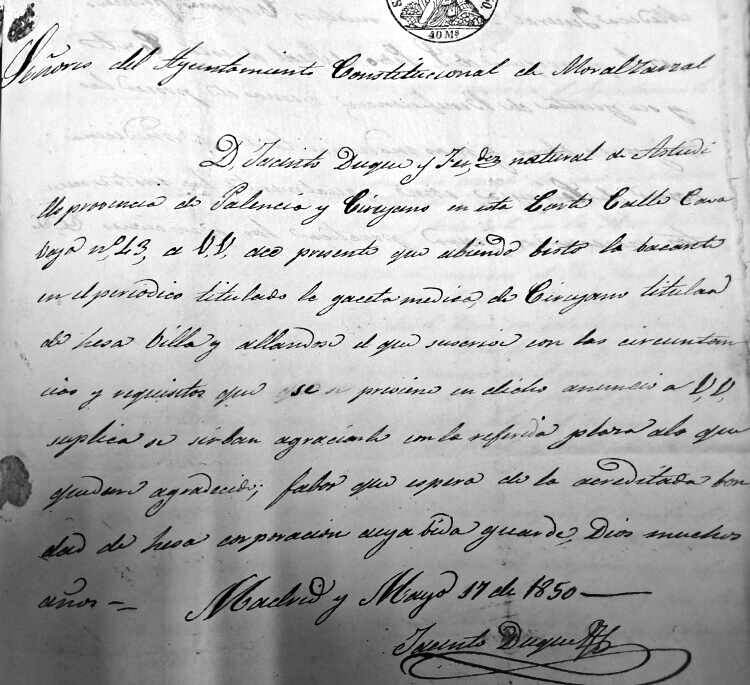 40 Ms
Señores del Ayuntamiento Constitucional de Moralzarzal
D. Jacinto Duque y Fer,dez natural de Astudi
llo provincia de Palencia y Cirujano en esta Corte Calle Cava
vaja nº 43, a V.V, ace presente que abiendo bisto la bacante
en el periodico titulado la gaceta medica, de Cirujano titular
de hesa Villa y allandose el que suscrive con las circuntan
cias y requisitos que se previene en dicho anuncio a V.V,
suplica se sirban agraciarle con la referida plaza a lo que
quedara agradecido; fabor que espera de la acreditada bon
dad de hesa corporación cuya bida guarde, Dios muchos
años —
Madrid y Mayo 17 de 1850 —
Jacinto Duque